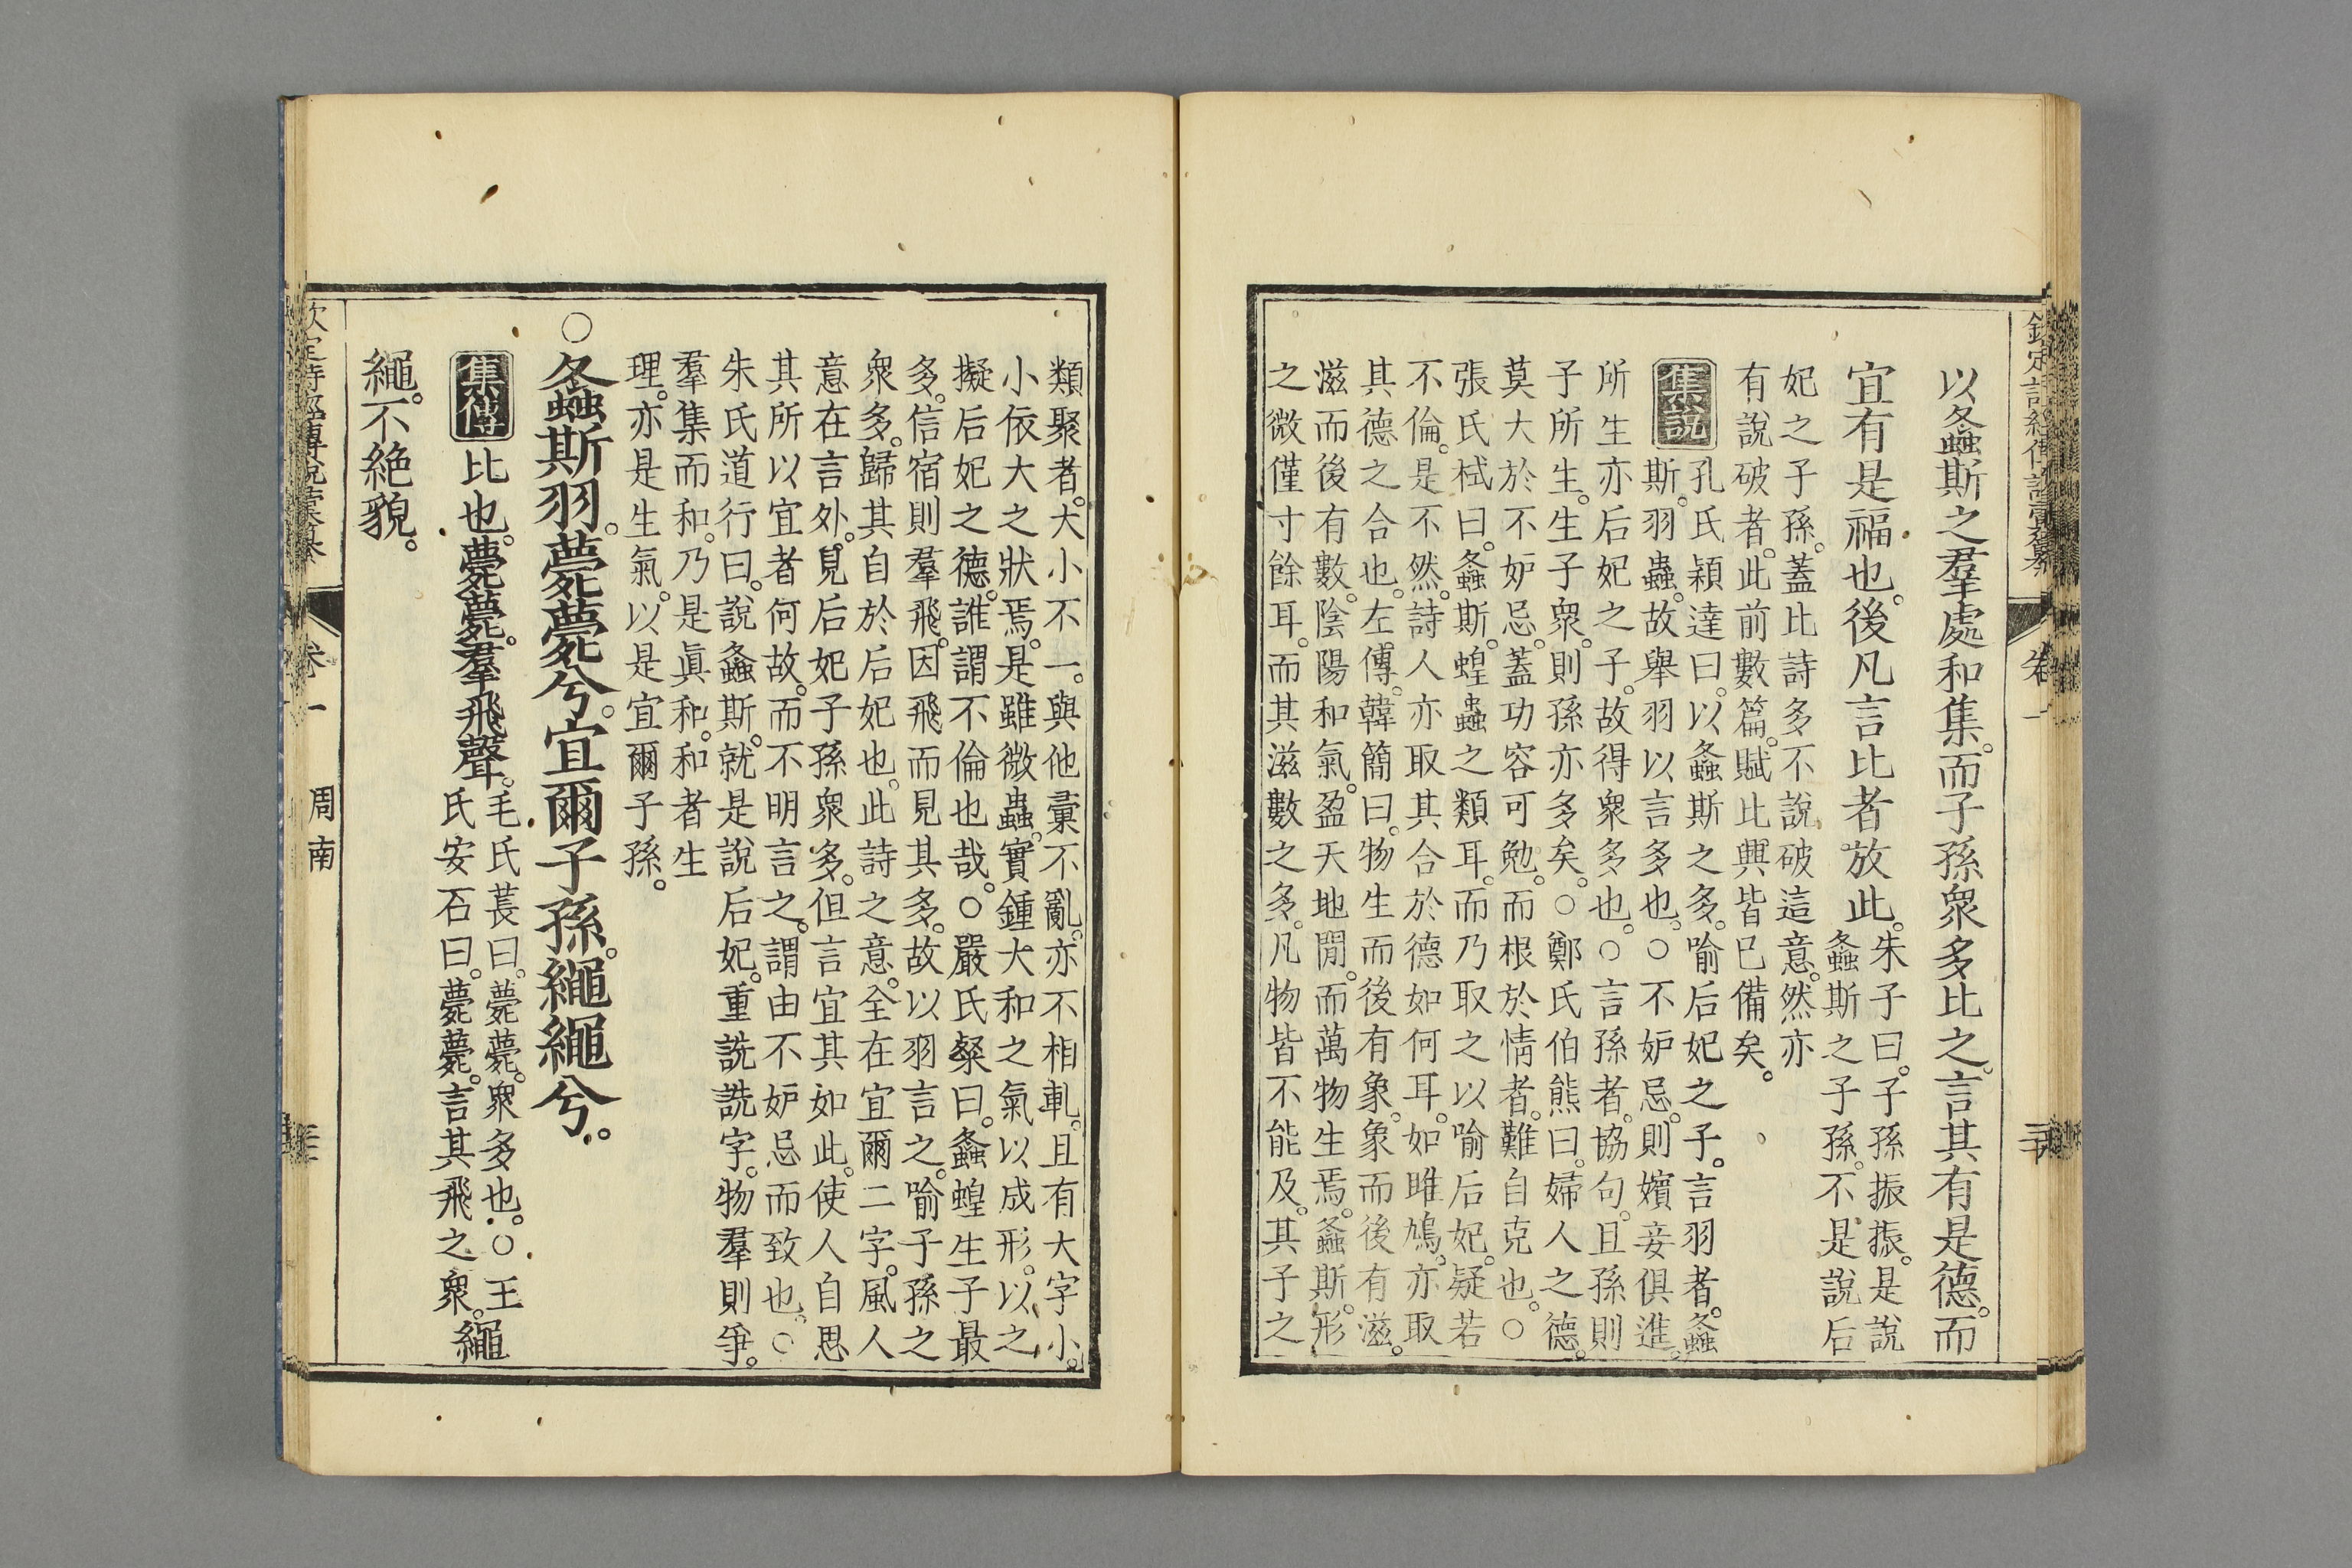 以螽斯之羣處和集。而子孫衆多比之。言其有是德。而
宜有是福也。後凡言比者放此。朱子曰。子孫振振。是說
螽斯之子孫。不是說后
妃之子孫。蓋比詩多不說破這意。然亦
有說破者。此前數篇。賦比興皆已備矣。
集說
孔氏穎達曰。以螽斯之多。喻后妃之子。言羽者。螽
斯。羽蟲。故舉羽以言多也。○不妒忌。則嬪妾俱進。
所生亦后妃之子。故得衆多也。○言孫者。協句。且孫則
子所生。生子衆。則孫亦多矣。○鄭氏伯熊曰。婦人之德。
莫大於不妒忌。蓋功容可勉。而根於情者。難自克也。○
張氏栻曰。螽斯。蝗蟲之類耳。而乃取之以喻后妃。疑若
不倫。是不然。詩人亦取其合於德如何耳。如雎鳩。亦取
其德之合也。左傳。韓簡曰。物生而後有象。象而後有滋。
滋而後有數。陰陽和氣。盈天地閒。而萬物生焉。螽斯。形
之微僅寸餘耳。而其滋數之多。凡物皆不能及。其子之
卷一
類聚者。大小不一。與他彙不亂。亦不相軋。且有大字小。
小依大之狀焉。是雖微蟲。實鍾大和之氣以成形。以之
擬后妃之德。誰謂不倫也哉。○嚴氏粲曰。螽蝗生子最
多。信宿則羣飛。因飛而見其多。故以羽言之。喻子孫之
衆多。歸其自於后妃也。此詩之意。全在宜爾二字。風人
意在言外。見后妃子孫衆多。但言宜其如此。使人自思
其所以宜者何故。而不明言之。謂由不妒忌而致也。○
朱氏道行曰。說螽斯。就是說后妃。重詵詵字。物羣則爭。
羣集而和。乃是眞和。和者生
理。亦是生氣。以是宜爾子孫。
○螽斯羽。薨薨兮。宜爾子孫。繩繩兮。
集傳
比也。薨薨。羣飛聲。毛氏萇曰。薨薨。衆多也。○王
氏安石曰。薨薨。言其飛之衆。繩
繩。不絕貌。
卷一
周南